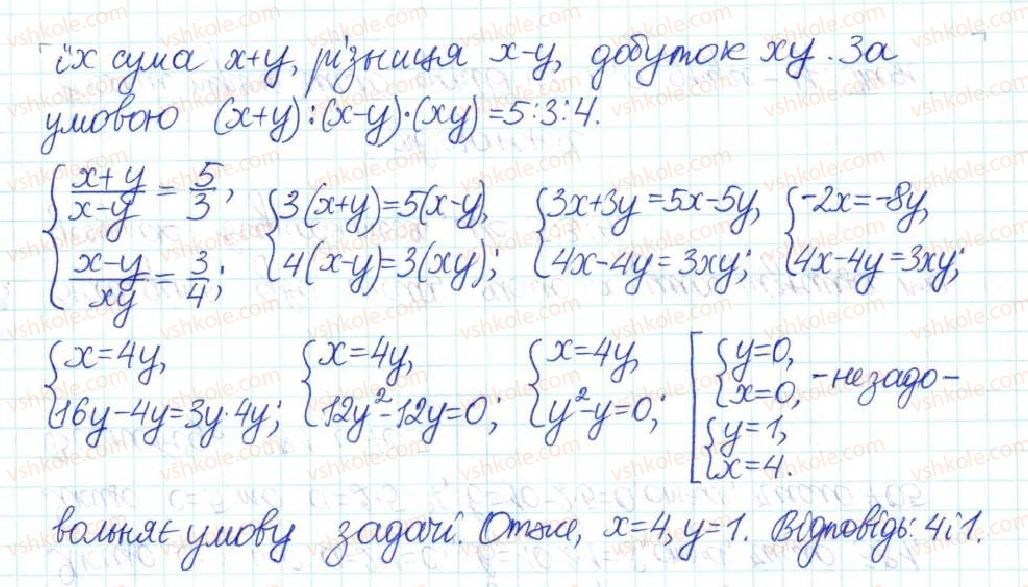 їх сума x+y, різниця x-y, добуток xy. За
умовою (x+y):(x-y)·(xy)=5:3:4.
{ (x+y)/(x-y) = 5/3, (x-y)/(xy) = 3/4; { 3(x+y)=5(x-y), 4(x-y)=3(xy); { 3x+3y=5x-5y, 4x-4y=3xy; { -2x=-8y, 4x-4y=3xy;
{ x=4y, 16y-4y=3y·4y; { x=4y, 12y²-12y=0; { x=4y, y²-y=0; [ { y=0, x=0, -незадо- { y=1, x=4.
вольняє умову задачі. Отже, x=4, y=1. Відповідь: 4 і 1.